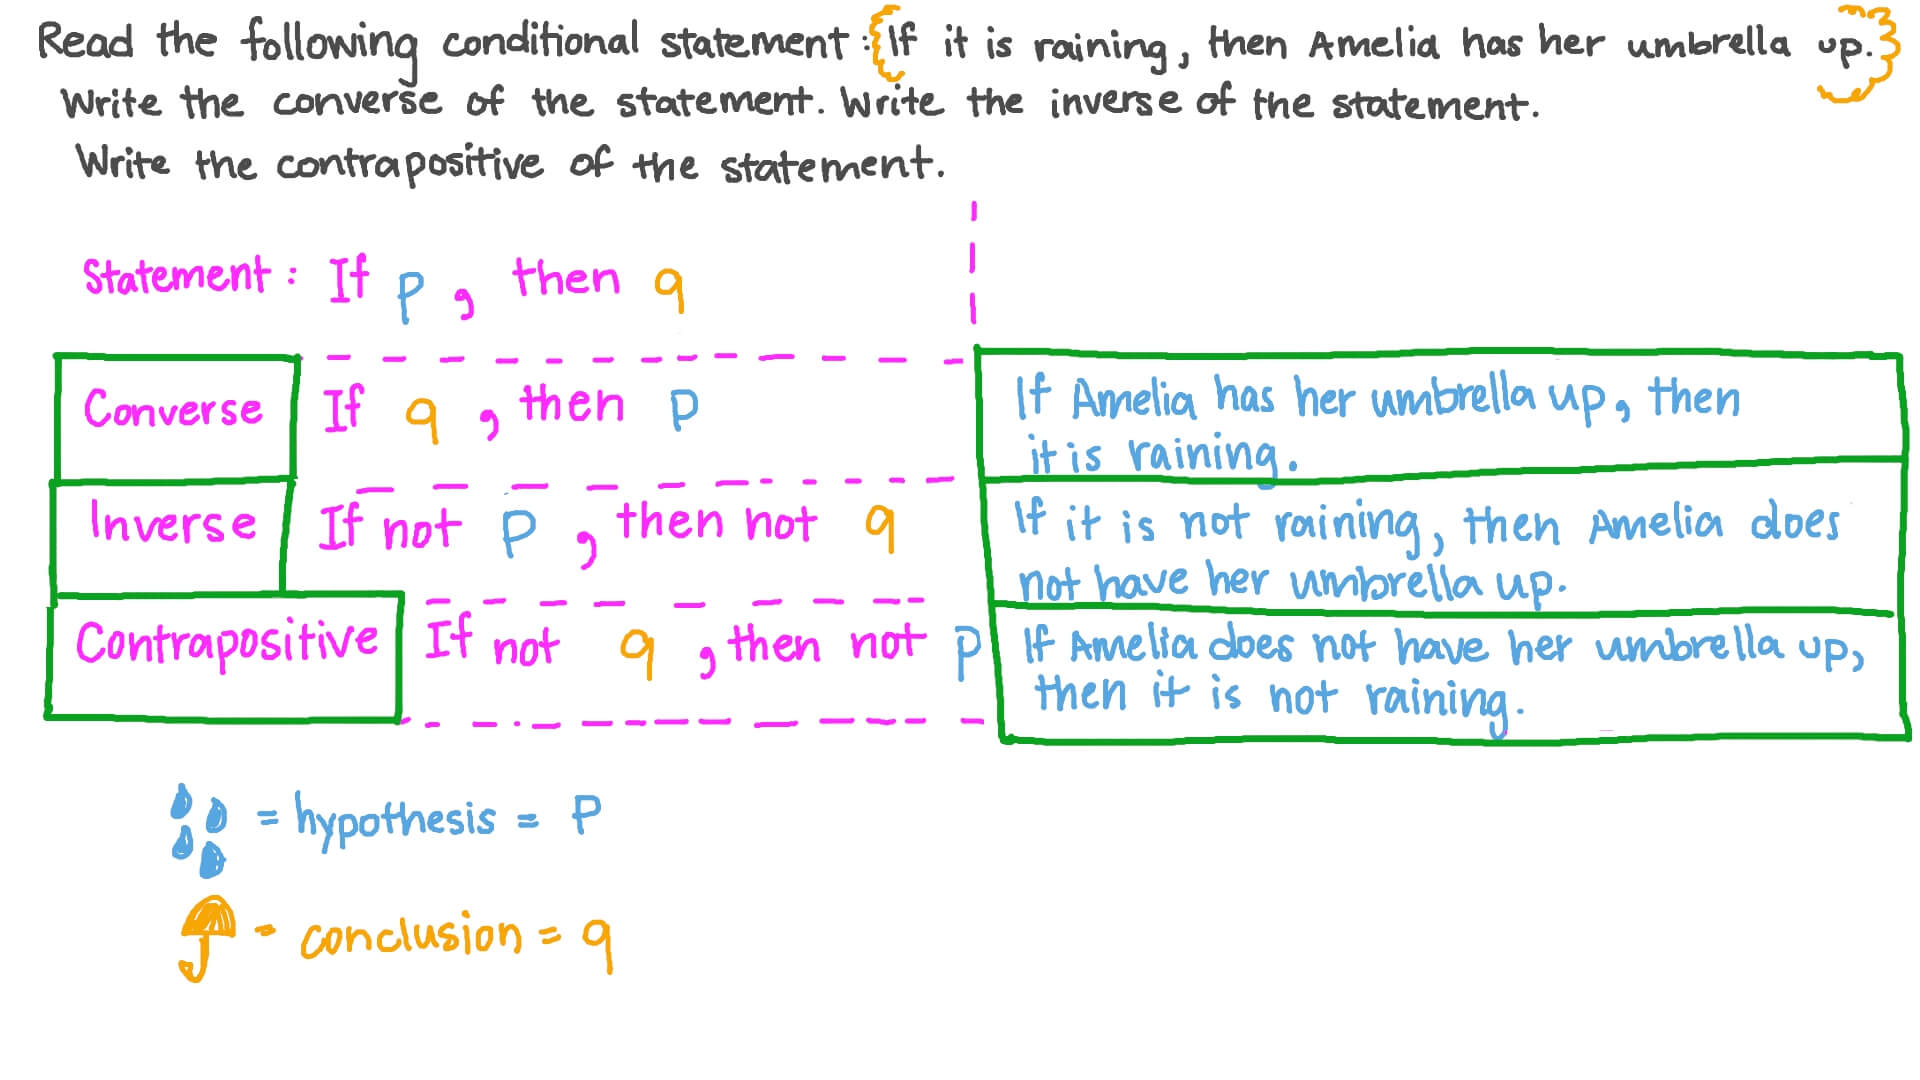 Read the following conditional statement: {If it is raining, then Amelia has her umbrella up.}
Write the converse of the statement. Write the inverse of the statement.
Write the contrapositive of the statement.
Statement: If p, then q
Converse If q, then p
If Amelia has her umbrella up, then
it is raining.
Inverse If not p, then not q
If it is not raining, then Amelia does
not have her umbrella up.
Contrapositive If not q, then not p
If Amelia does not have her umbrella up,
then it is not raining.
= hypothesis = p
= conclusion = q